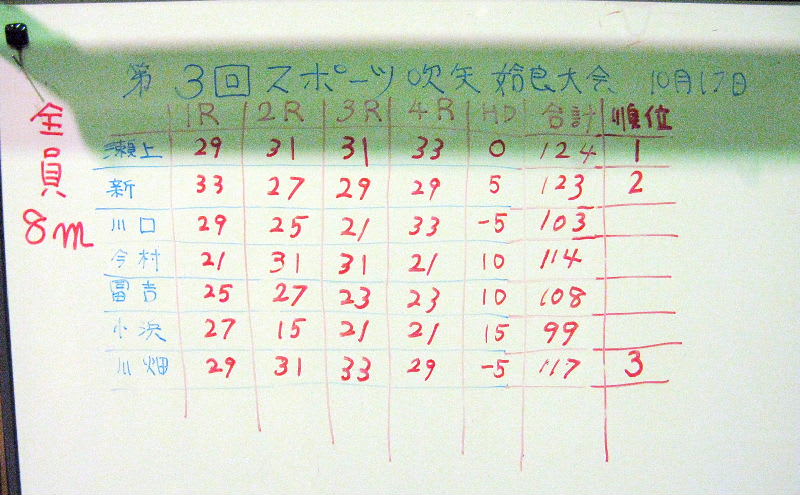 第3回スポーツ吹矢 姶良大会 10月17日
全員
8m
1R 2R 3R 4R HD 合計 順位
瀬上 29 31 31 33 0 124 1
新 33 27 29 29 5 123 2
川口 29 25 21 33 -5 103
今村 21 31 31 21 10 114
冨吉 25 27 23 23 10 108
小浜 27 15 21 21 15 99
川畑 29 31 33 29 -5 117 3